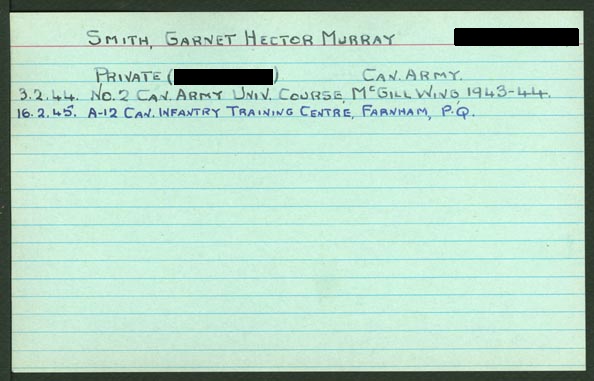 SMITH, GARNET HECTOR MURRAY
PRIVATE ( ) CAN. ARMY.
3.2.44. NO. 2 CAN. ARMY UNIV. COURSE, McGILL WING 1943-44.
16.2.45. A-12 CAN. INFANTRY TRAINING CENTRE, FARNHAM, P.Q.